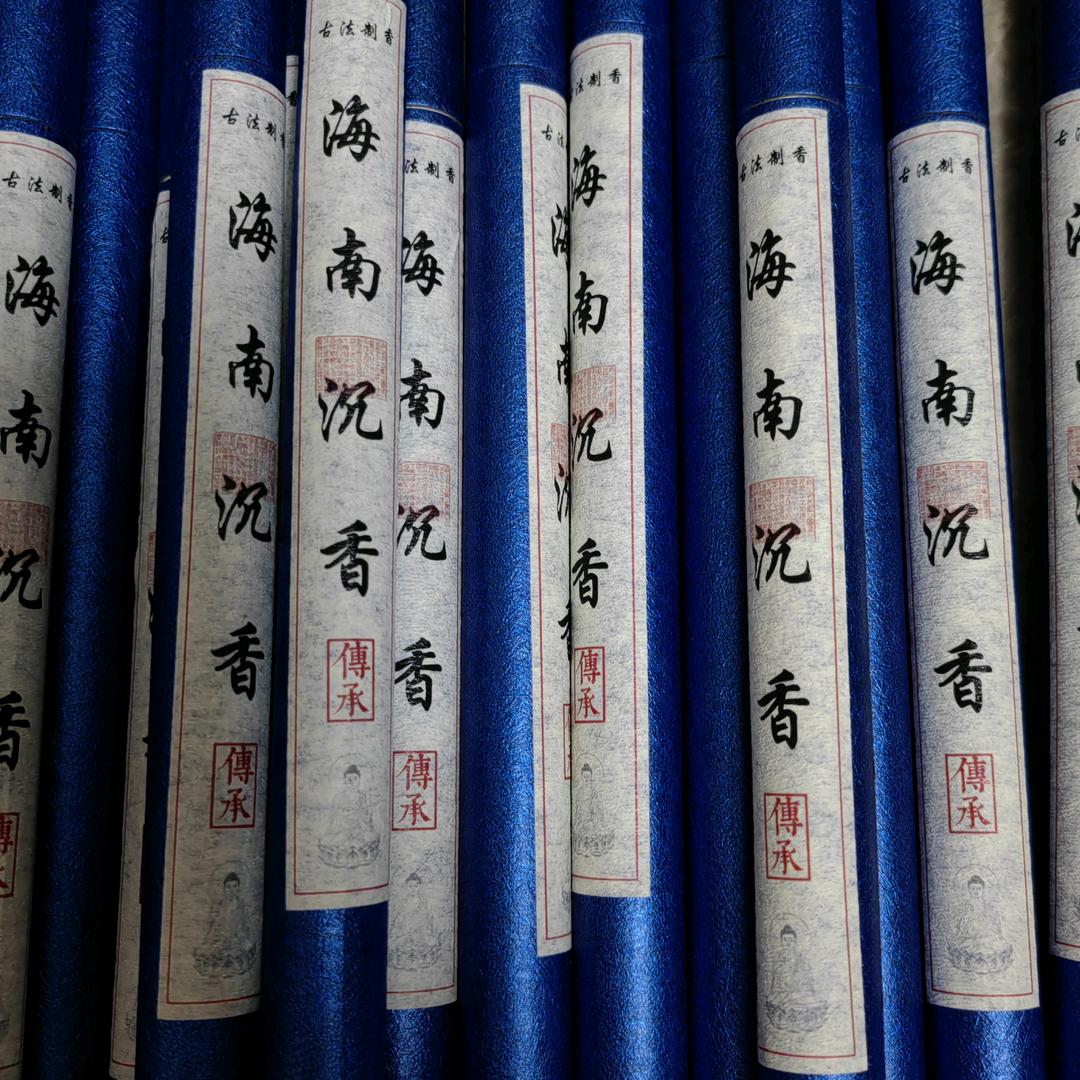 古法制香
海南沉香
傳承
古法制香
海南沉香
傳承
古法制香
海南沉香
傳承
法制香
海南沉香
傳承
古法
法制香
海南沉香
傳承
古法制香
海南沉香
傳承
古法制香
海南沉香
傳承
古